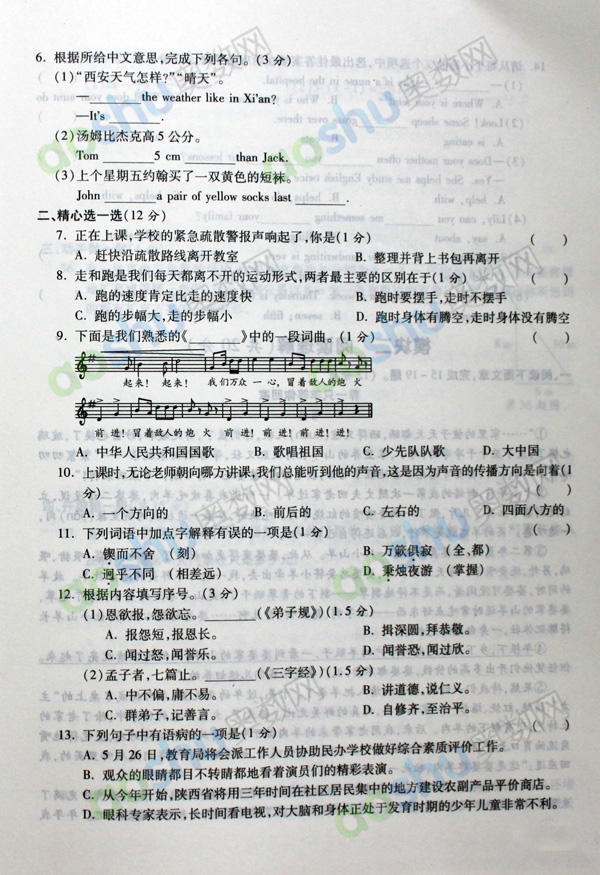 6. 根据所给中文意思,完成下列各句。(3 分)
(1)“西安天气怎样?”“晴天”。
— ______ the weather like in Xi'an?
—It's ______ .
(2)汤姆比杰克高 5 公分。
Tom ______ 5 cm ______ than Jack.
(3)上个星期五约翰买了一双黄色的短袜。
John ______ a pair of yellow socks last ______ .
二、精心选一选(12 分)
7. 正在上课,学校的紧急疏散警报声响起了,你是(1 分) ( )
A. 赶快沿疏散路线离开教室 B. 整理并背上书包再离开
8. 走和跑是我们每天都离不开的运动形式,两者最主要的区别在于(1 分) ( )
A. 跑的速度肯定比走的速度快 B. 跑时要摆手,走时不摆手
C. 跑的步幅大,走的步幅小 D. 跑时身体有腾空,走时身体没有腾空
9. 下面是我们熟悉的《______》中的一段词曲。(1 分) ( )
起来! 起来! 我们万众 一 心, 冒着敌人的炮 火
前 进! 冒着敌人的炮 火 前 进! 前 进! 前 进! 进!
A. 中华人民共和国国歌 B. 歌唱祖国 C. 少先队队歌 D. 大中国
10. 上课时,无论老师朝向哪方讲课,我们总能听到他的声音,这是因为声音的传播方向是向着(1
分) ( )
A. 一个方向的 B. 前后的 C. 左右的 D. 四面八方的
11. 下列词语中加点字解释有误的一项是(1 分) ( )
A. 锲而不舍 (刻) B. 万籁俱寂 (全,都)
C. 迥乎不同 (相差远) D. 秉烛夜游 (掌握)
12. 根据内容填写序号。(3 分)
(1)恩欲报,怨欲忘。______(《弟子规》)(1.5 分)
A. 报怨短,报恩长。 B. 揖深圆,拜恭敬。
C. 闻过怒,闻誉乐。 D. 闻誉恐,闻过欣。
(2)孟子者,七篇止。______(《三字经》)(1.5 分)
A. 中不偏,庸不易。 B. 讲道德,说仁义。
C. 群弟子,记善言。 D. 自修齐,至治平。
13. 下列句子中有语病的一项是(1 分) ( )
A. 5 月 26 日,教育局将会派工作人员协助民办学校做好综合素质评价工作。
B. 观众的眼睛都目不转睛都地看着演员们的精彩表演。
C. 从今年开始,陕西省将用三年时间在社区居民集中的地方建设农副产品平价商店。
D. 眼科专家表示,长时间看电视,对大脑和身体正处于发育时期的少年儿童非常不利。
aoshu奥数网